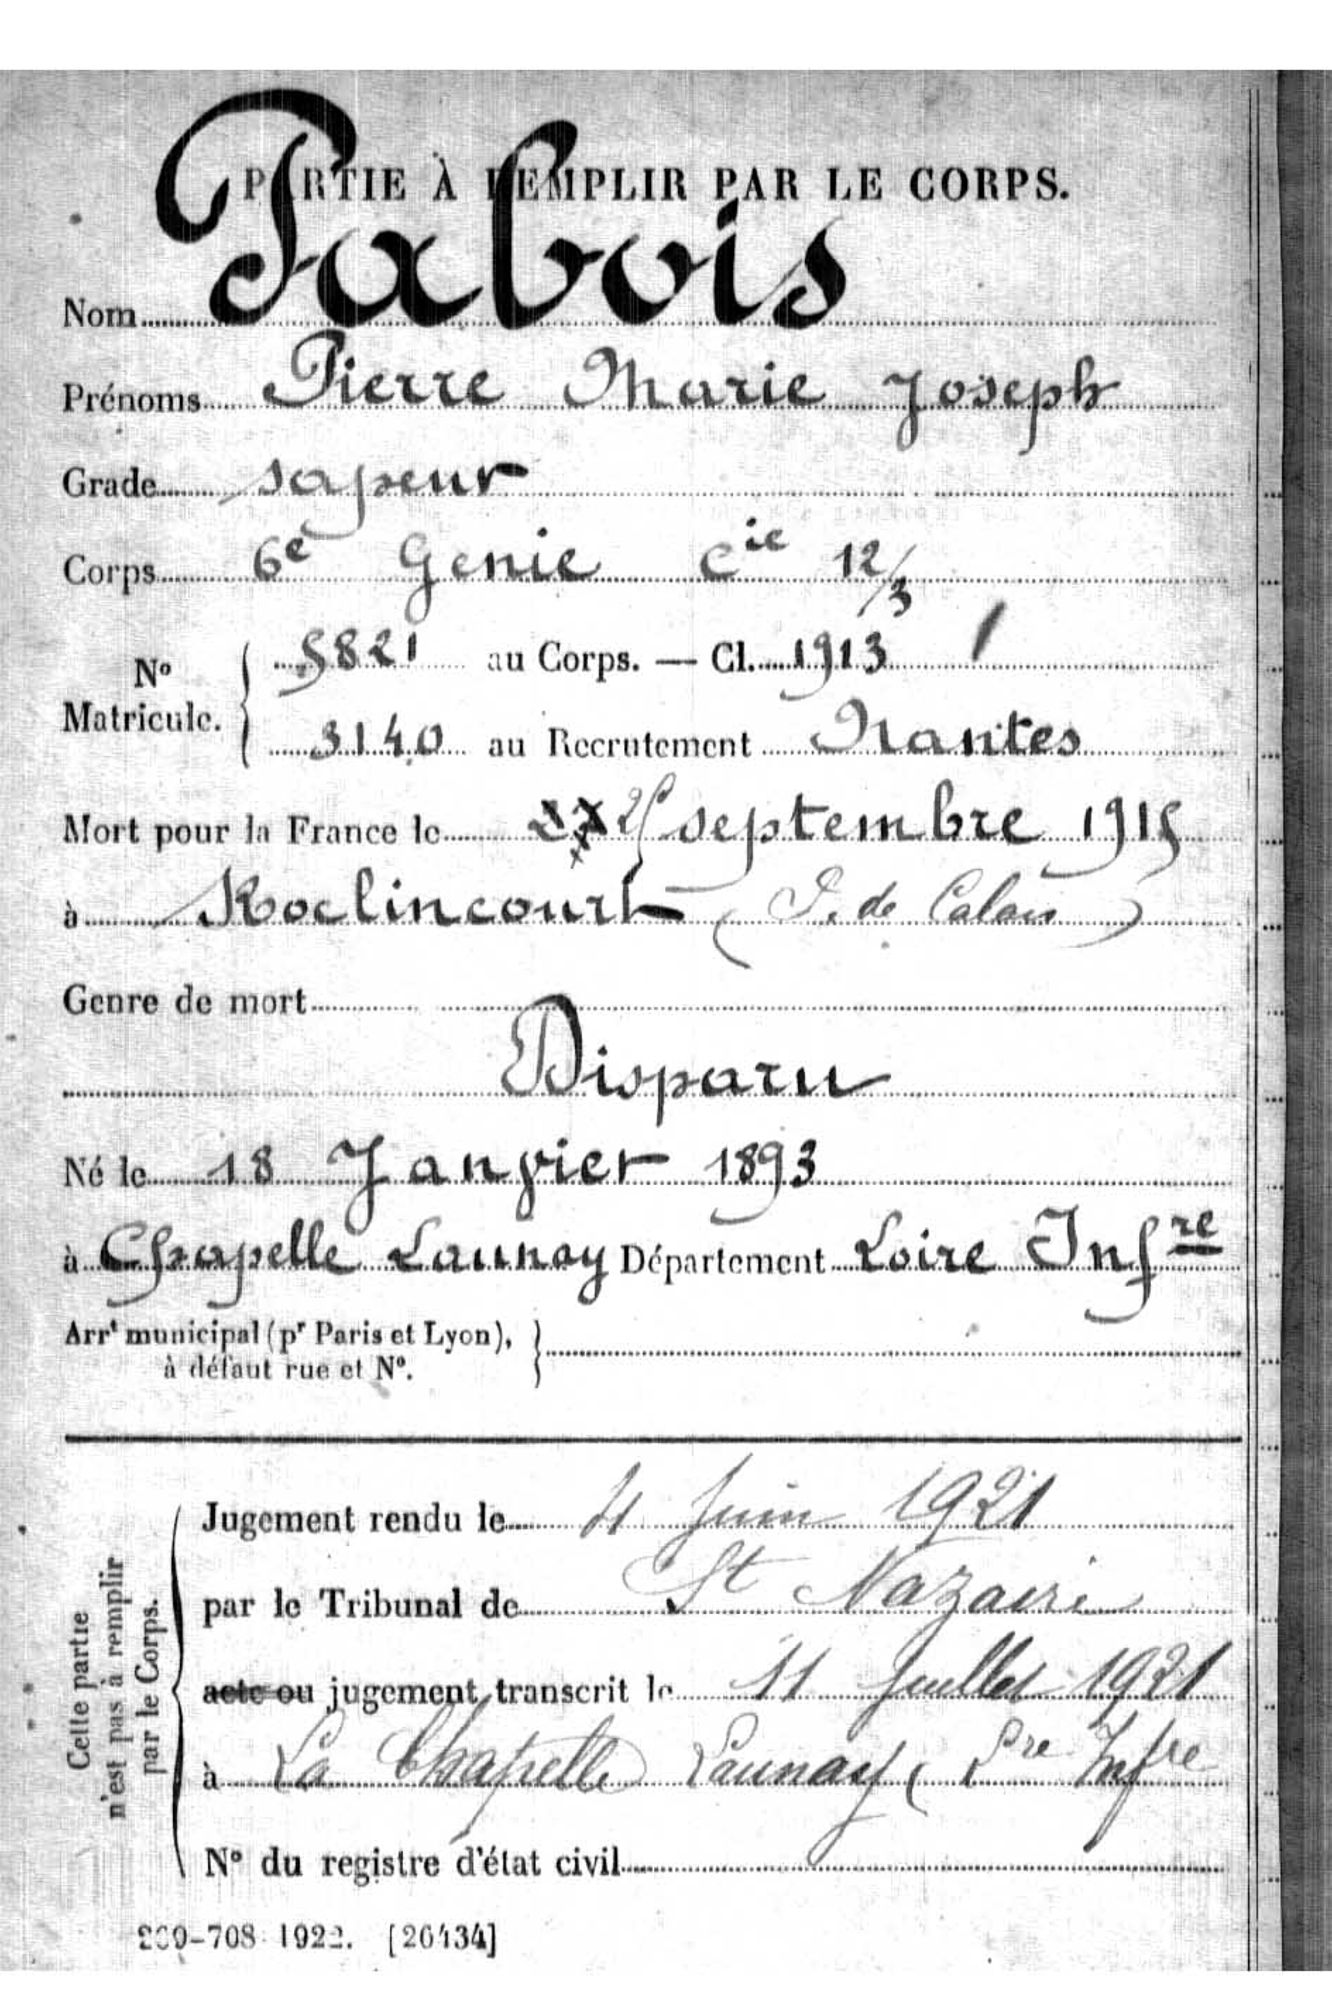 PARTIE À REMPLIR PAR LE CORPS.
Nom Pabois
Prénoms Pierre Marie Joseph
Grade sapeur
Corps 6e Genie Cie 12/3
No Matricule. { 5821 au Corps. — Cl. 1913
3140 au Recrutement Nantes
Mort pour la France le 25 septembre 1915
à Roclincourt (P. de Calais)
Genre de mort
Disparu
Né le 18 Janvier 1893
à Chapelle Launay Département Loire Infre
Arrt municipal (pr Paris et Lyon), }
à défaut rue et No.
Cette partie
n'est pas à remplir
par le Corps.
Jugement rendu le Juin 1921
par le Tribunal de St Nazaire
acte ou jugement transcrit le 11 Juillet 1921
à La Chapelle Launay (Lre Infre
No du registre d'état civil
708 1922. [26434]